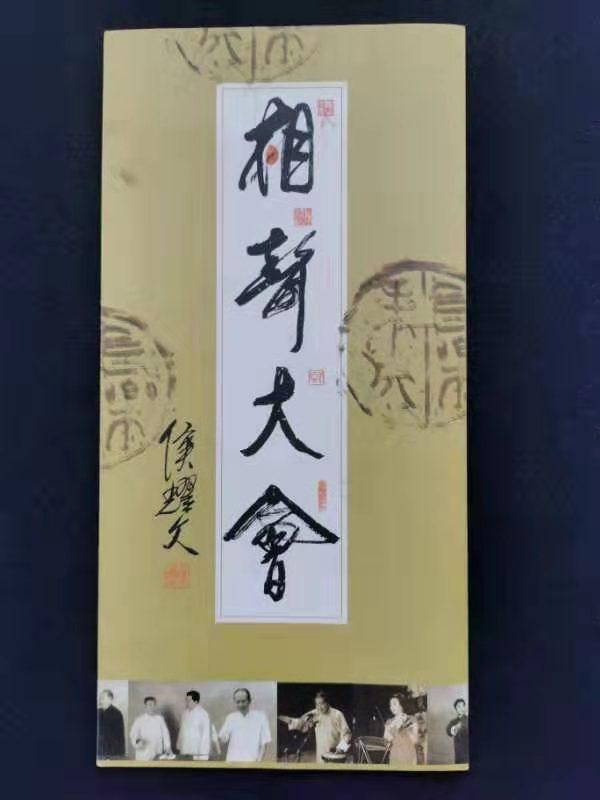 相聲大會
侯耀文